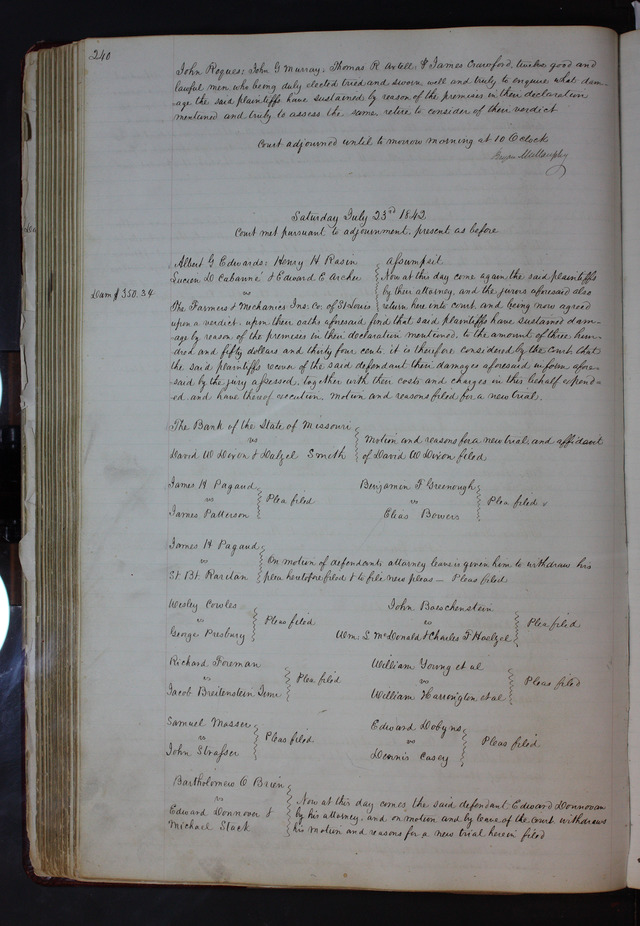 240
John Roques; John G Murray; Thomas R Axtell; & James Crawford, twelve good and
lawful men who being duly elected tried and sworn well and truly to enquire what dam-
age the said plaintiffs have sustained by reason of the premises in their declaration
mentioned and truly to assess the same retire to consider of their verdict
Court adjourned until to morrow morning at 10 O'clock
Saturday July 23rd 1842
Court met pursuant to adjournment, present as before
Albert G Edwards; Henry H Rasin
Lucien D Cabanné & Edward E Archer
vs
The Farmers & Mechanics Ins. Co. of St Louis
Dam $350.34
Assumpsit
Now at this day come again the said plaintiffs
by their attorney, and the jurors aforesaid also
return here into court and being now agreed
upon a verdict, upon their oaths aforesaid find that said plaintiffs have sustained dam-
age by reason of the premises in their declaration mentioned, to the amount of three hun-
dred and fifty dollars and thirty four cents, it is therefore considered by the Court that
the said plaintiffs recover of the said defendant their damages aforesaid in form afore-
said by the jury assessed, together with their costs and charges in this behalf expend-
ed and have thereof execution. Motion and reasons filed for a new trial.
The Bank of the State of Missouri
vs
David W Dixon & Dalzel Smith
Motion and reasons for a new trial and affidavit
of David W Dixon filed
James H Pagaud
vs
James Patterson
Plea filed
Benjamin F Greenough
vs
Elias Bowers
Plea filed
James H Pagaud
vs
St Bt Raritan
On motion of defendants attorney leave is given him to withdraw his
plea heretofore filed & to file new pleas — Pleas filed
Wesley Cowles
vs
George Presbury
Pleas filed
John Baeschenstein
vs
Wm S McDonald & Charles F Haelzel
Plea filed
Richard Foreman
vs
Jacob Breitenstein
Plea filed
William Young et al
vs
William Harrington et al
Pleas filed
Samuel Masser
vs
John Strasser
Pleas filed
Edward Dobyns
vs
Dennis Casey
Pleas filed
Bartholomew O Brien
vs
Edward Donnovan &
Michael Slack
Now at this day comes the said defendant Edward Donnovan
by his attorney, and on motion and by leave of the court withdraws
his motion and reasons for a new trial herein filed